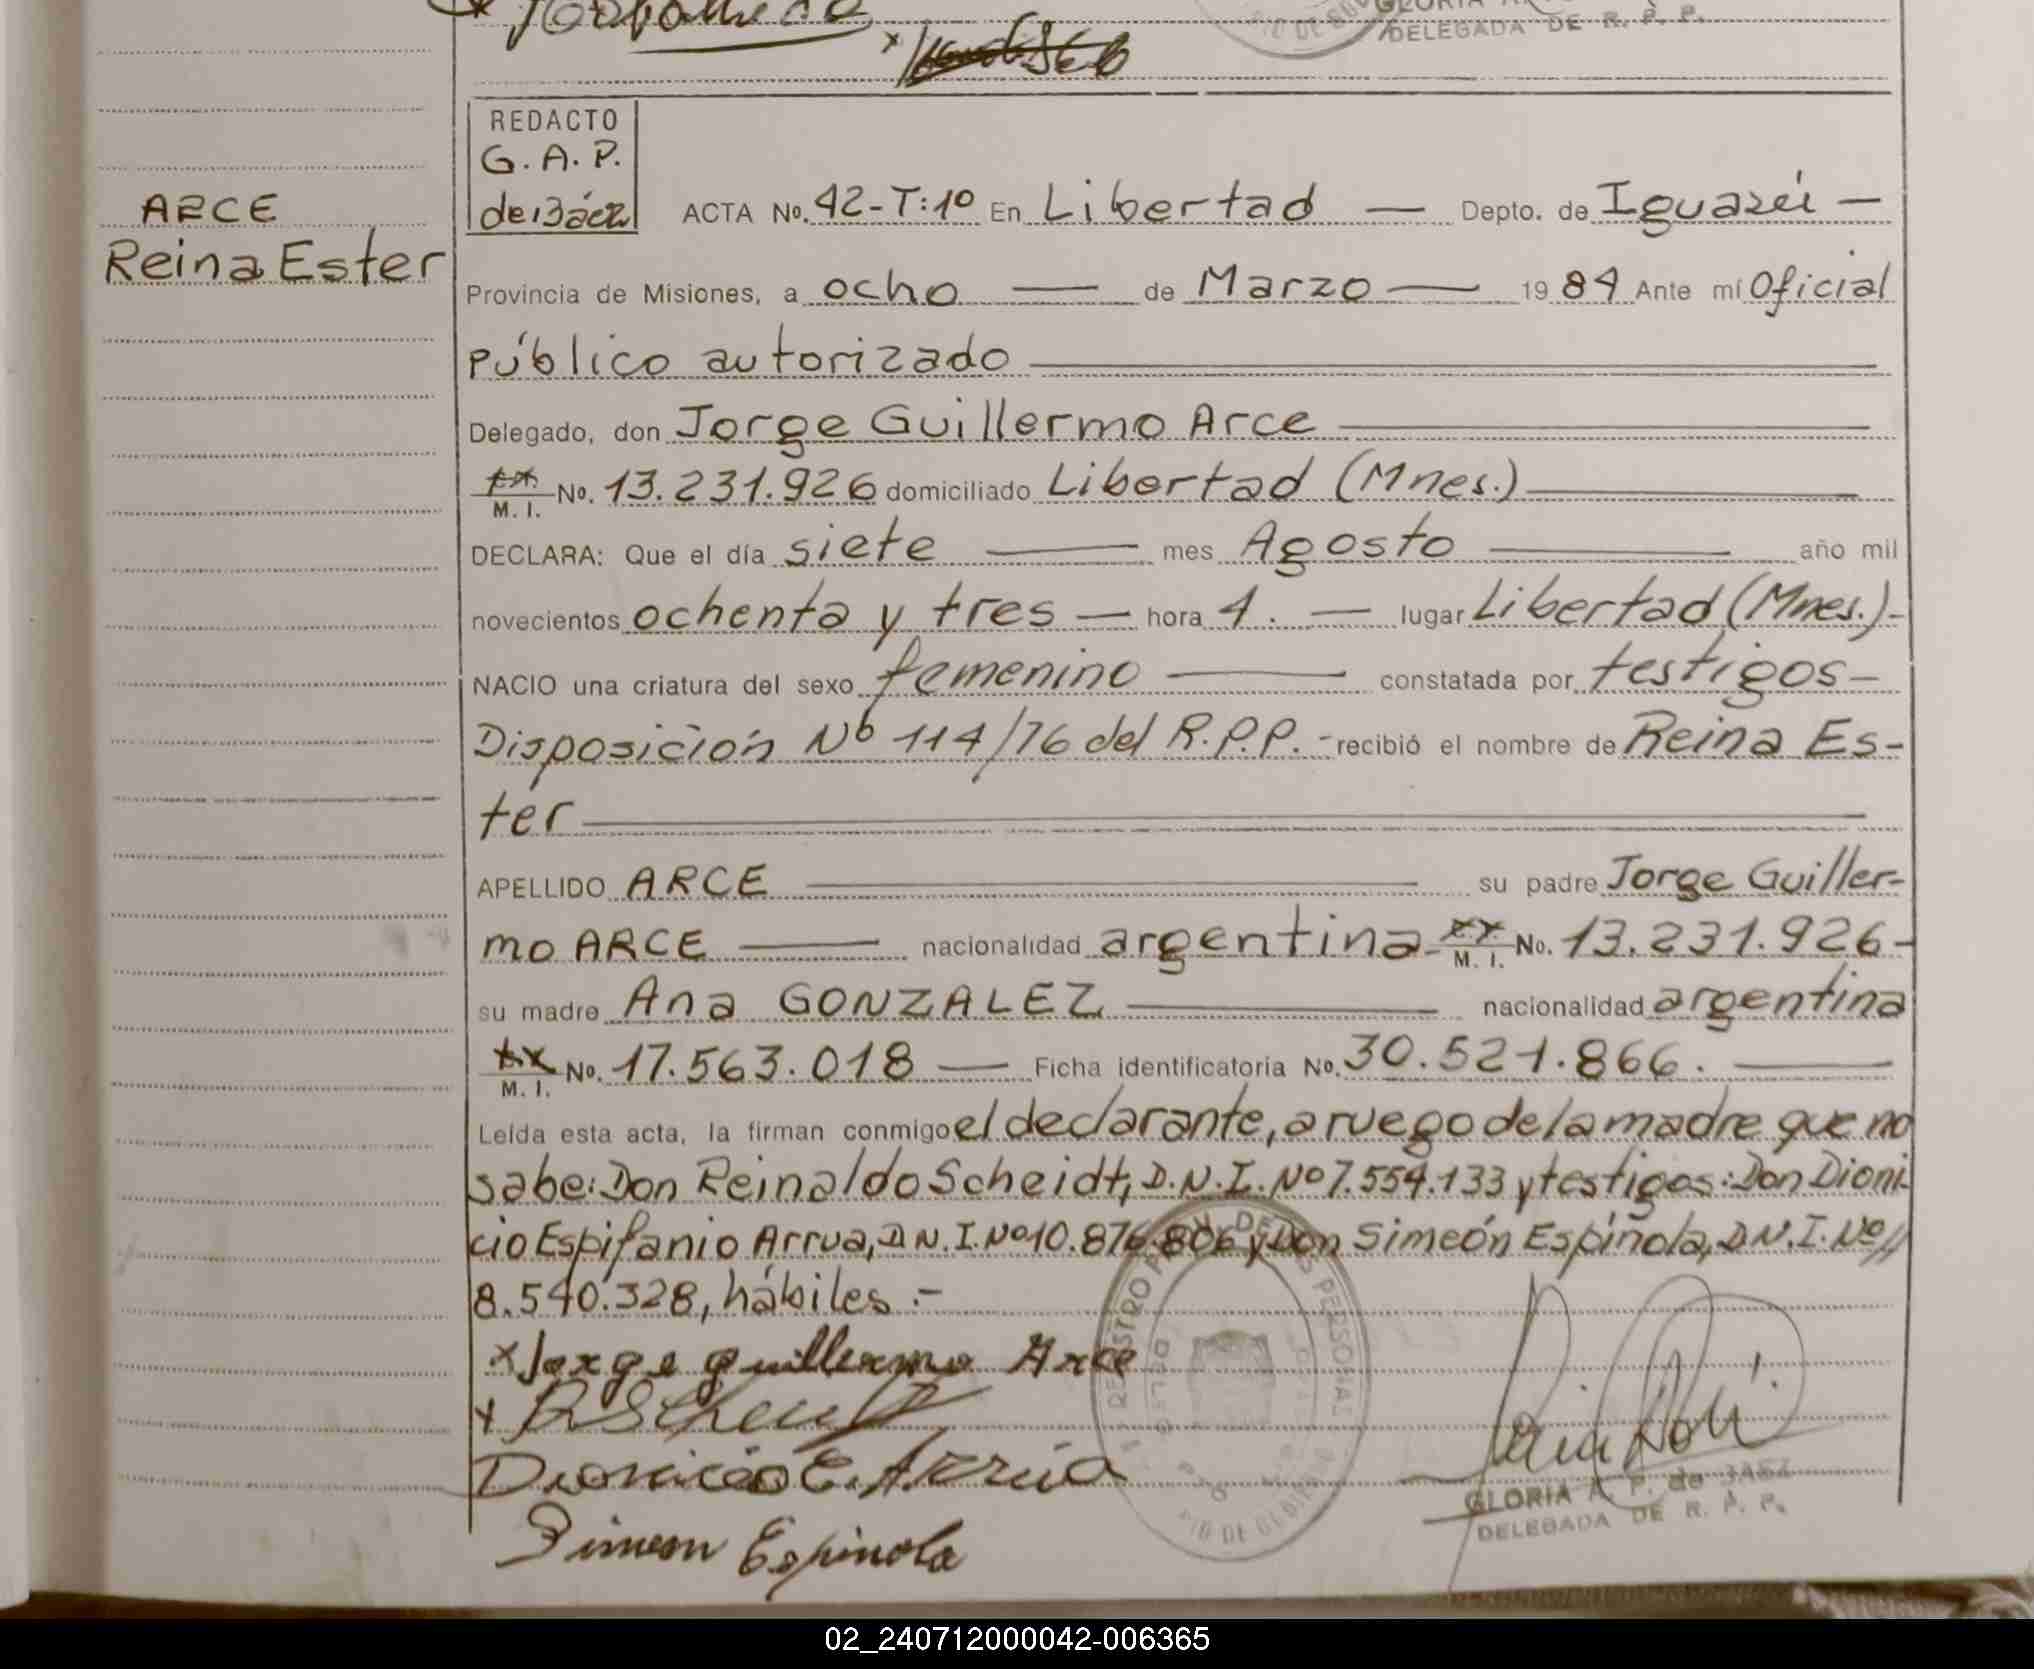 GLORIA
DELEGADA DE R. P. P.
REDACTO
G. A. P.
de Báez
ARCE
Reina Ester
ACTA No. 42-T:1º En Libertad — Depto. de Iguazú —
Provincia de Misiones, a ocho — de Marzo — 1984 Ante mí Oficial
público autorizado
Delegado, don Jorge Guillermo Arce
M. I. No. 13.231.926 domiciliado Libertad (Mnes.)
DECLARA: Que el día siete — mes Agosto — año mil
novecientos ochenta y tres — hora 4. — lugar Libertad (Mnes.)-
NACIO una criatura del sexo femenino — constatada por testigos-
Disposición Nº 114/76 del R.P.P. - recibió el nombre de Reina Es-
ter
APELLIDO ARCE — su padre Jorge Guiller-
mo ARCE — nacionalidad argentina- M. I. No. 13.231.926-
su madre Ana GONZALEZ — nacionalidad argentina
M. I. No. 17.563.018 — Ficha identificatoria No. 30.521.866. —
Leída esta acta, la firman conmigo el declarante, a ruego de la madre que no
sabe: Don Reinaldo Scheidt, D.N.I. Nº 7.554.133 y testigos: Don Dioni-
cio Espifanio Arrua, D.N.I. Nº 10.876.806 y Don Simeón Espíñola, D.N.I. Nº//
8.540.328, hábiles.-
x Jorge guillermo Arce
Dionicio E. Arrúa
Simeon Espinola
GLORIA A. P. de BAEZ
DELEGADA DE R. P. P.
02_240712000042-006365